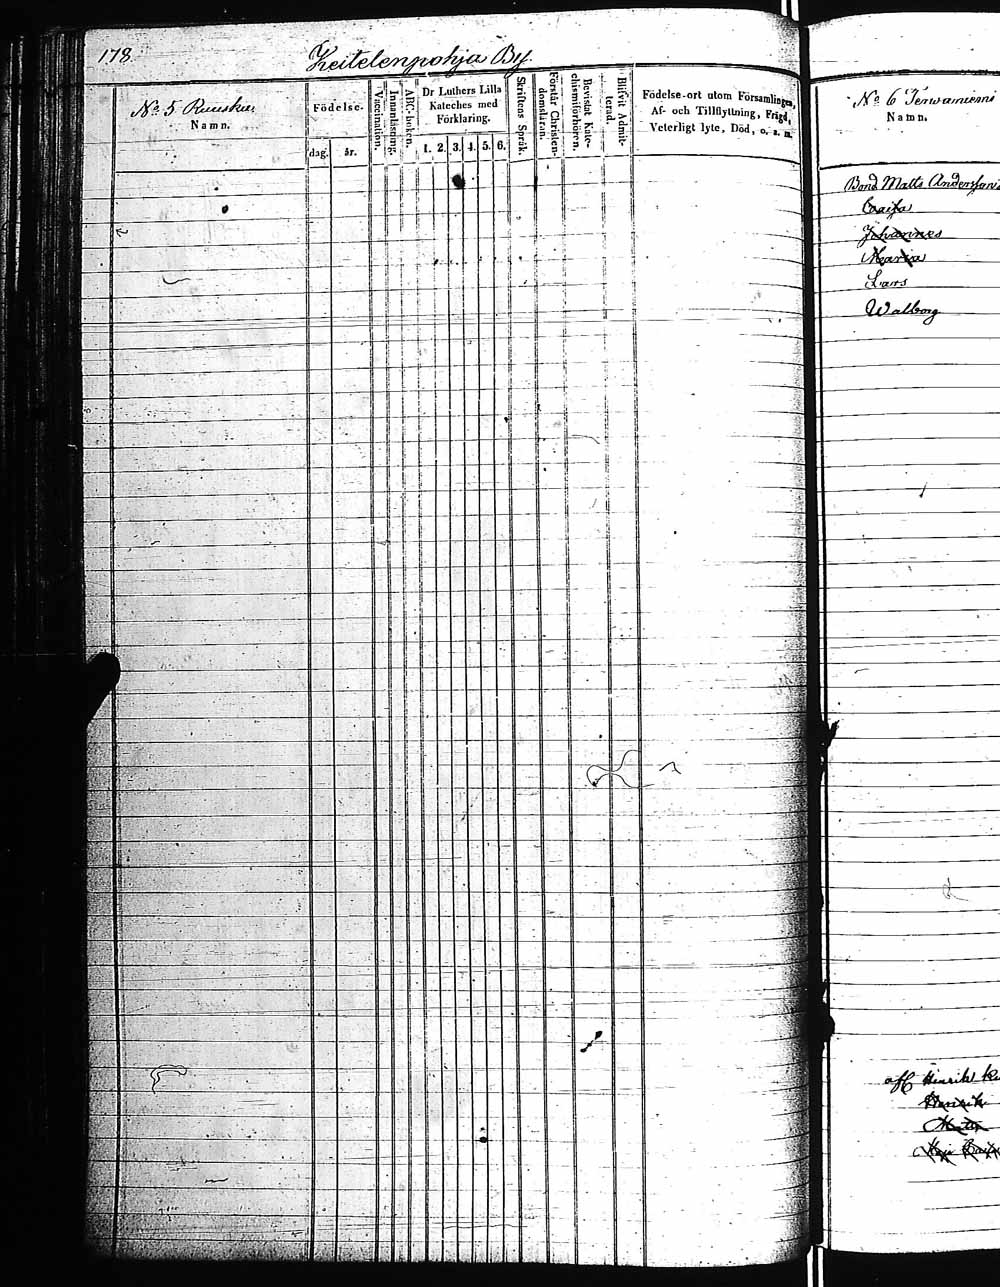 178.
Keitelenpohja By.
No 5 Ruuska
Namn.
Födelse-
dag.
år.
Vaccination.
Innanläsning.
ABC-boken.
Dr Luthers Lilla
Kateches med
Förklaring.
1. 2. 3. 4. 5. 6.
Skriftens Språk.
Förstår Christen-
domsläran.
Bevistat Kate-
chismiförhören.
Blifvit Admit-
terad.
Födelse-ort utom Församlingen,
Af- och Tillflyttning, Frigd,
Veterligt lyte, Död, o. s. m.
No 6 Terwamiemi
Namn.
Bond Matts Andersson
Caisa
Johannes
Maria
Lars
Walborg
Henrik
Henrik
Matts